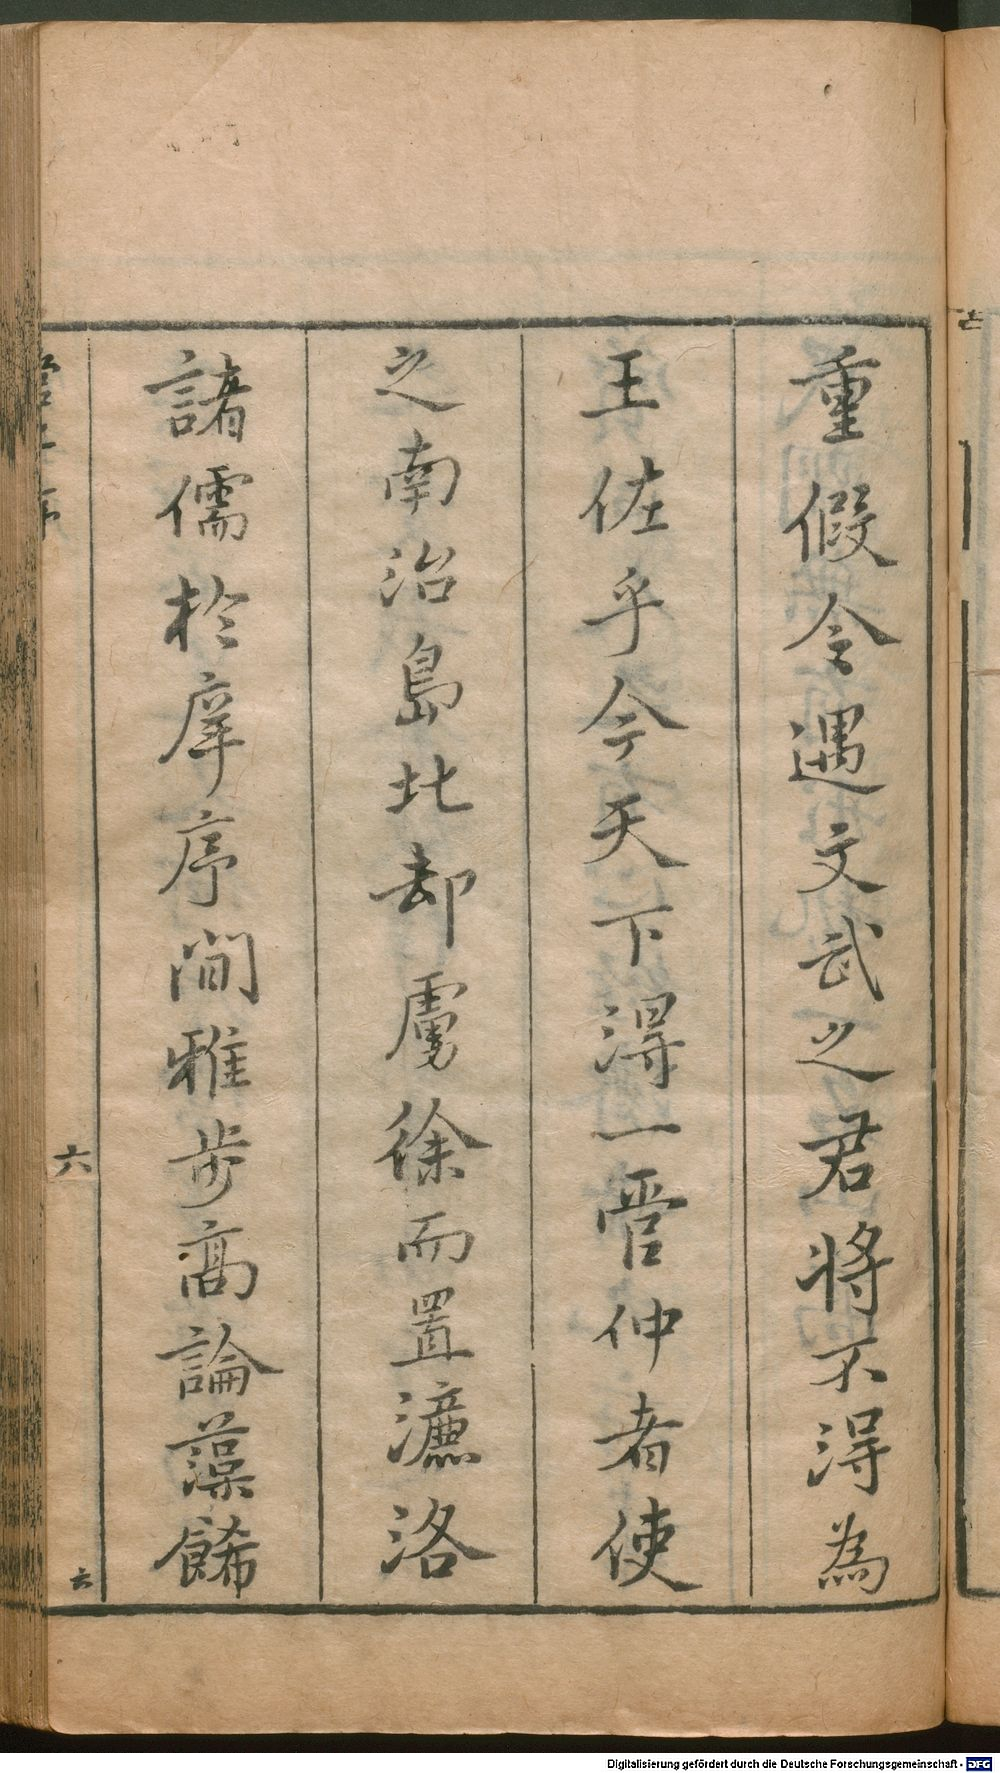 重假令遇文武之君將不得為
王佐乎今天下得一管仲者使
之南治島北却虜徐而置濂洛
諸儒於庠序間雅步高論藻餙
六
六
Digitalisierung gefördert durch die Deutsche Forschungsgemeinschaft - DFG